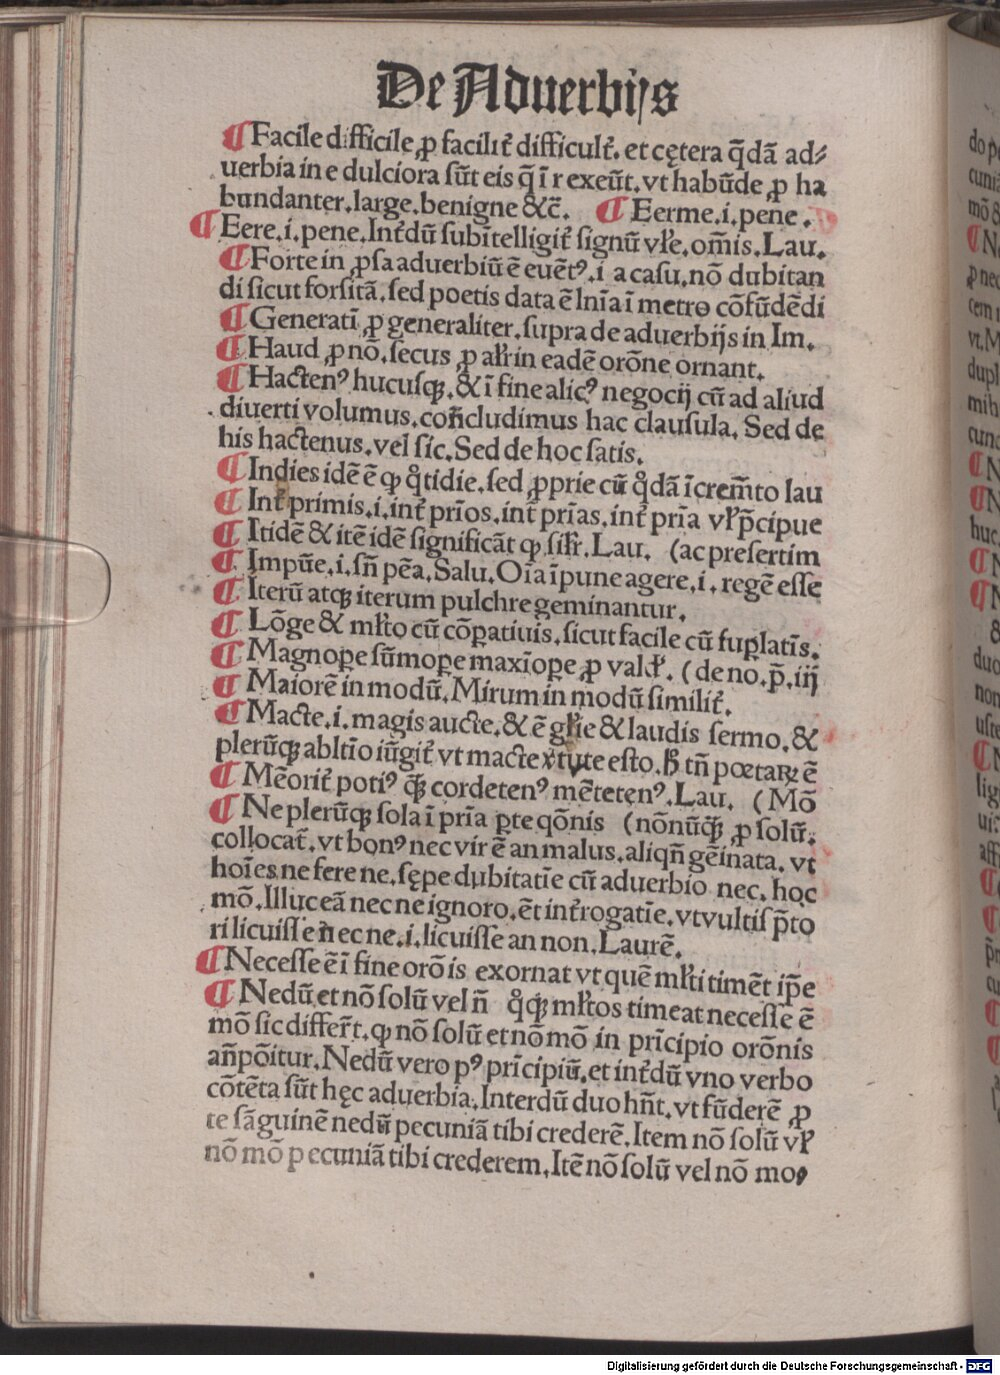 De Aduerbijs
¶ Facile difficile, ꝓ facilit᷑ difficult᷑. et cętera q̄dā ad⸗
uerbia in e dulciora sūt eis q̄ ī r exeūt. vt habūde ꝓ ha
bundanter. large. benigne &c̄. ¶ Eerme .i. pene.
¶ Eere .i. pene. Int᷑dū subītelligit᷑ signū vłe, om̄is. Lau.
¶ Forte in ꝓsa aduerbiū ē euēt⁹ .i a casu, nō dubitan
di sicut forsitā, sed poetis data ē lnīa ī metro cōfūdēdi
¶ Generatī ꝓ generaliter. supra de aduerbijs in Im.
¶ Haud ꝓ nō. secus ꝓ ałr in eadē orōne ornant.
¶ Hacten⁹ hucusqꝫ. & ī fine alic⁹ negocij cū ad aliud
diuerti volumus. con̄cludimus hac clausula. Sed de
his hactenus. vel sic. Sed de hoc satis.
¶ Indies idē ē ꝙ q̊tidie. sed ꝓprie cū q̊dā īcrem̄to lau
¶ Int᷑ primis .i. int᷑ pr̄ios. int᷑ pr̄ias. int᷑ pr̄ia vł p̄cipue
¶ Itidē & itē idē significāt ꝙ sił̄r. Lau. (ac presertim
¶ Impūe .i. sn̄ pēa. Salu. Oīa īpune agere .i. regē esse
¶ Iterū atqꝫ iterum pulchre geminantur.
¶ Lōge & młto cū cōꝑatiuis. sicut facile cū suꝑlatīs.
¶ Magnoꝑe sūmoꝑe maxīoꝑe ꝓ vald᷑. (de no. p̄. iij
¶ Maiorē in modū. Mirum in modū similit᷑.
¶ Macte .i. magis aucte. & ē głie & laudis sermo. &
plerūqꝫ abltīo iūgit᷑ vt macte v᷑tute esto. ꝧ tn̄ poetaꝝ ē
¶ Mēorit᷑ poti⁹ q̄ꝫ cordeten⁹ mēteten⁹. Lau. (Mō
¶ Ne plerūqꝫ sola ī pr̄ia ꝑte qōnis (nōnūq̄ꝫ ꝓ solū.
collocat᷑. vt bon⁹ nec vir ē an malus. aliqn̄ gēinata. vt
hoīes ne fere ne. sępe dubitatīe cū aduerbio nec. hoc
mō. Illuc eā nec ne ignoro. ēt int᷑rogatīe. vt vultis p̄to
ri licuisse nec ne .i. licuisse an non. Laurē.
¶ Necesse ē ī fine orōis exornat vt quē młti timēt ip̄e
¶ Nedū et nō solū vel n̄ q̊qꝫ młtos timeat necesse ē
mō sic differ̄t. ꝙ nō solū et nō mō in pr̄icipio orōnis
an̄pōitur. Nedū vero p⁹ pr̄icipiū. et int᷑dū vno verbo
cōtēta sūt hęc aduerbia. Interdū duo hn̄t. vt fūderē ꝓ
te sāguinē nedū pecuniā tibi crederē. Item nō solū vł
nō mō pecuniā tibi crederem. Itē nō solū vel nō mo⸗
Digitalisierung gefördert durch die Deutsche Forschungsgemeinschaft - DFG